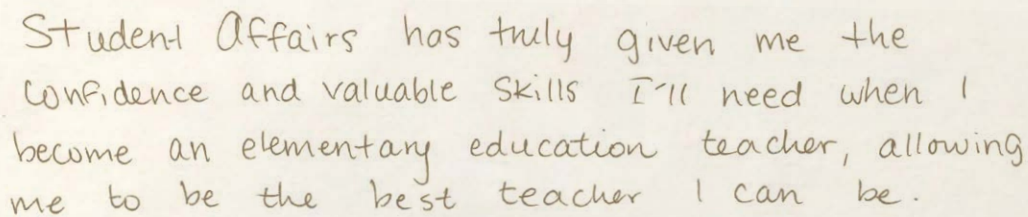 Student Affairs has truly given me the
confidence and valuable skills I'll need when I
become an elementary education teacher, allowing
me to be the best teacher I can be.